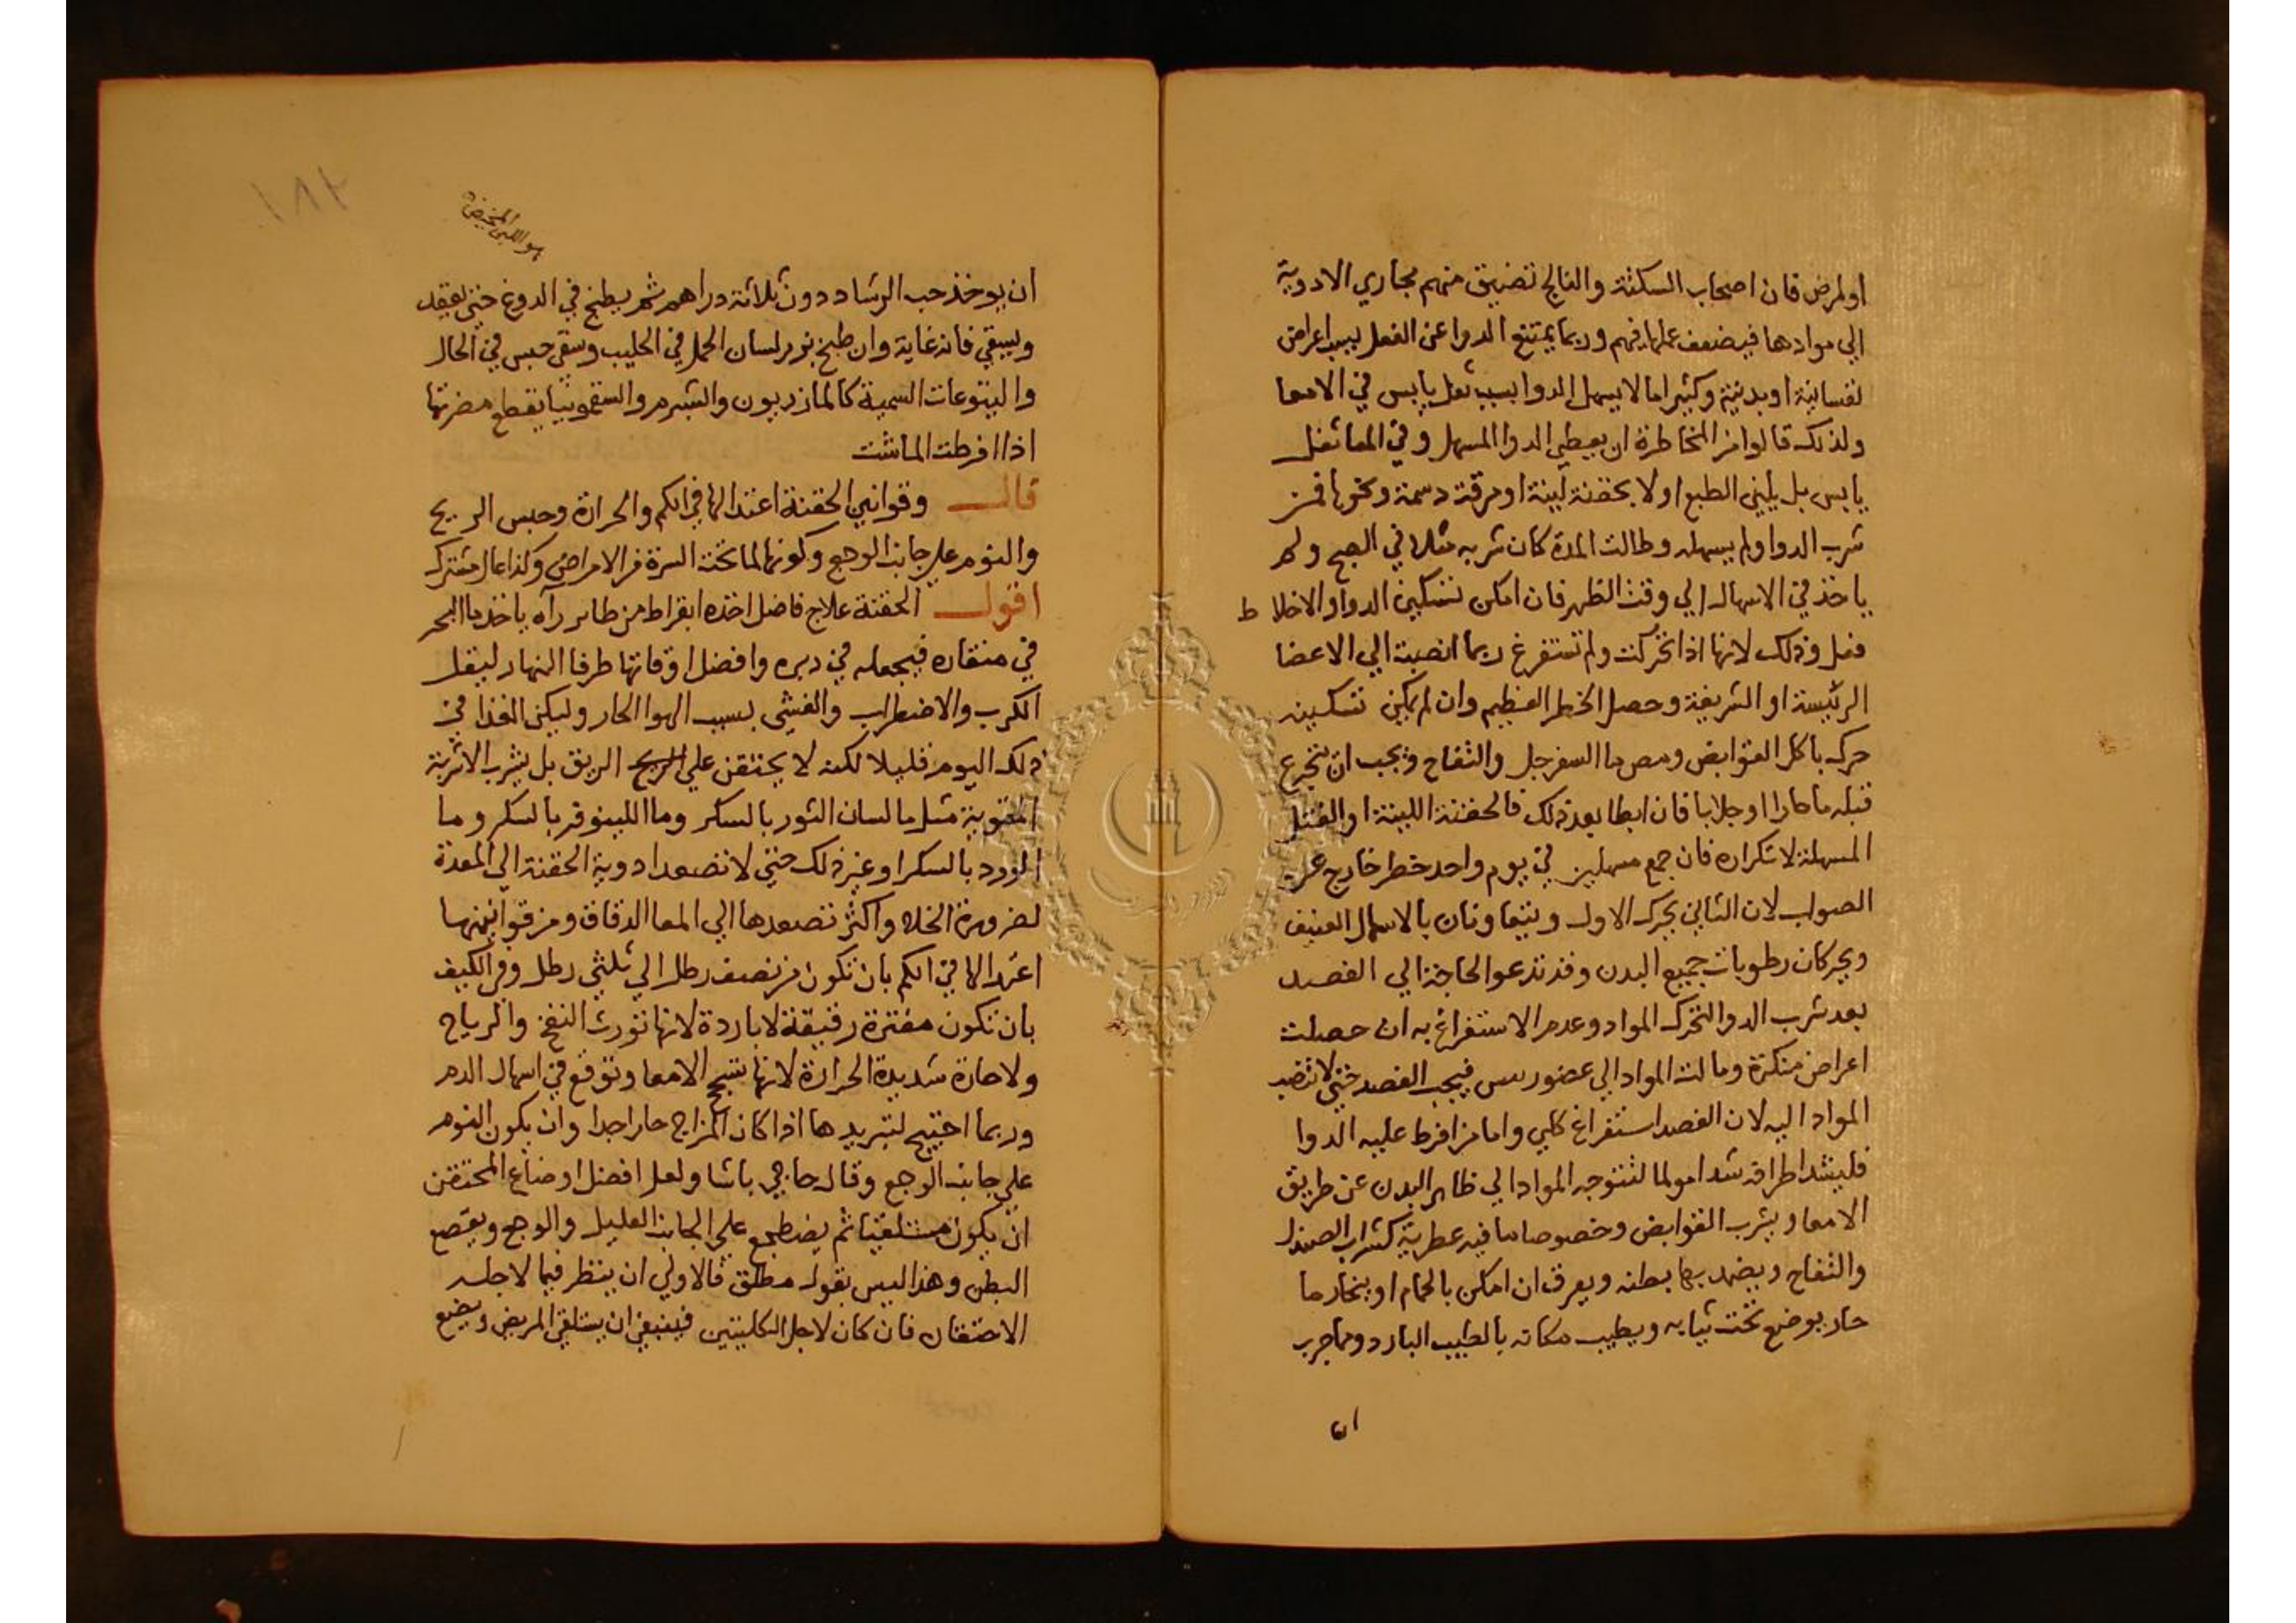 اولمرض فان اصحاب السكتة والفالج تضيق منهم مجاري الادوية
الي موادها فيضعف عملها فيهم وربما يمتنع الدوا عن الفعل بسبب اعراض
نفسانية او بدنية وكثيرا ما لا يسهل الدوا بسبب ثفل يابس في الامعا
ولذلك قالوا من المخاطرة ان يعطي الدوا المسهل وفي المعا ثفل
يابس بل يلين الطبع اولا بحقنة لينة او مرقة دسمة ونحوها فمن
شرب الدوا ولم يسهله وطالت المدة كان شربه مثلا في الصبح ولم
ياخذ في الاسهال الي وقت الظهر فان امكن تسكين الدوا والاخلاط
فعل وذلك لانها اذا تحركت ولم تستفرغ ربما انصبت الي الاعضا
الرئيسة او الشريفة وحصل الخطر العظيم وان لم يمكن تسكينه
حركه باكل القوابض ومص ما السفرجل والتفاح ويجب ان يتجرع
قبله ما حارا او جلابا فان ابطا بعد ذلك فالحقنة اللينة او الفتل
المسهلة لا تكراره فان جمع مسهلين في يوم واحد خطر خارج عن
الصواب لان الثاني يحرك الاول ويتعاونان بالاسهال العنيف
ويحركان رطوبات جميع البدن وقد تدعوا الحاجة الي الفصد
بعد شرب الدوا لتحرك المواد وعدم الاستفراغ به ان حصلت
اعراض منكرة ومالت المواد الي عضو رييس فيجب الفصد حتي لا تنصب
المواد اليه لان الفصد استفراغ كلي واما من افرط عليه الدوا
فليشد اطرافه شدا مولما لتتوجه المواد الي ظاهر البدن عن طريق
الامعا ويشرب القوابض وخصوصا ما فيه عطرية كشراب الصندل
والتفاح ويضمد بها بطنه ويعرق ان امكن بالحمام او بخار ما
حار يوضع تحت ثيابه ويطيب مكانه بالطيب البارد ومما جرب
ان
١٨٢
هو اللبن المخيض
ان يوخذ حب الرشاد دون ثلاثة دراهم ثم يطبخ في الدوغ حتي يعقد
ويسقي فانه غاية وان طبخ بزر لسان الحمل في الحليب وسقي حبس في الحال
واليتوعات السمية كالمازريون والشبرم والسقمونيا يقطع مضرتها
اذا افرطت الماشت
قال وقوانين الحقنة اعتدالها في الكم والحرارة وحبس الريح
والنوم علي جانب الوجع وكونها لما تحت السرة من الامراض وكذا عال مشترك
اقول الحقنة علاج فاضل اخذه ابقراط من طاير رآه ياخذ ما البحر
في منقاره فيجعله في دبره وافضل اوقاتها طرفا النهار ليقل
الكرب والاضطراب والغشي بسبب الهوا الحار وليكن الغذا في
ذلك اليوم قليلا لكنه لا يحتقن علي الريح الريق بل يشرب الاشربة
المقوية مثل ما لسان الثور بالسكر وما اللينوفر بالسكر وما
الورد بالسكر او غير ذلك حتي لا تصعد ادوية الحقنة الي المعدة
لضرورة الخلا واكثر تصعدها الي المعا الدقاق ومن قوانينها
اعتدالها في الكم بان تكون من نصف رطل الي ثلثي رطل وفي الكيف
بان تكون مفترة رقيقة لا باردة لانها تورث النفخ والرياح
ولا حارة شديدة الحرارة لانها تسحج الامعا وتوقع في اسهال الدم
وربما احتيج لتبريدها اذا كان المزاج حارا جدا وان يكون النوم
علي جانب الوجع وقال حاجي باشا ولعل افضل اوضاع المحتقن
ان يكون مستلقيا ثم يضطجع علي الجانب العليل والوجع ويعصع
البطن وهذا ليس بقول مطلق فالاولي ان ينظر فيما لاجله
الاحتقان فان كان لاجل الكليتين فينبغي ان يستلقي المريض ويضع